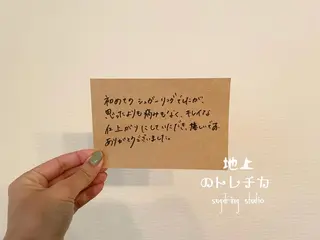 初めての シュガーリングでしたが、
思ったよりも痛みもなく、キレイな
仕上がりにしていただき、嬉しいです。
ありがとうございました。
地上
のトレチカ
sugaring studio